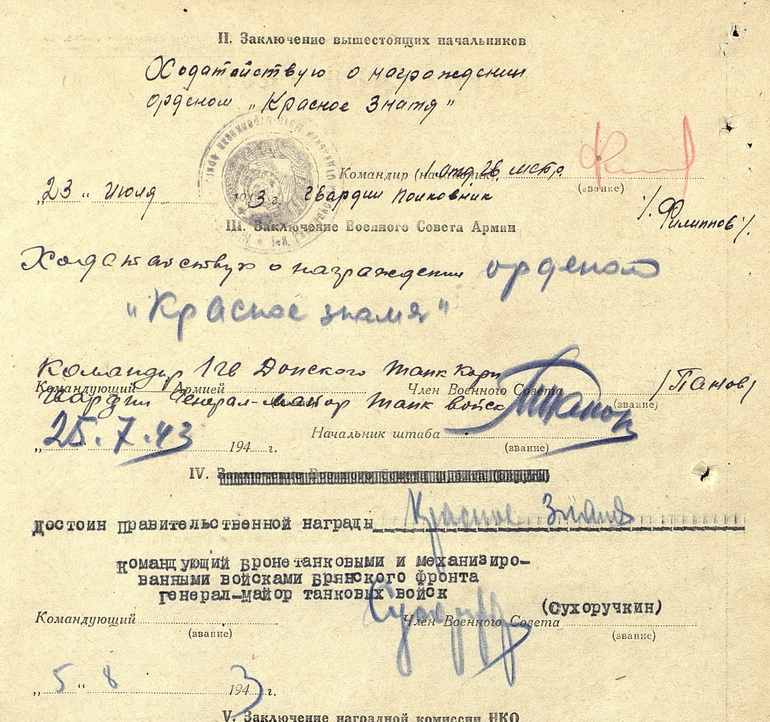 II. Заключение вышестоящих начальников
Ходатайствую о награждении
орденом „Красное Знамя"
Командир (начальник)
1 отд 26 мстр
(звание)
„23" Июля 1943 г. Гвардии Полковник
/Филиппов/.
III. Заключение Военного Совета Армии
Ходатайствую о награждении орденом
"Красное знамя"
Командир 1 гв Донского танк Корп
Командующий Армией Член Военного Совета /Панов/
Гвардии Генерал-майор танк войск
(звание)
25.7.43
„ 194 г. Начальник штаба
(звание)
IV.
Достоин правительственной награды Красное Знамя
Командующий бронетанковыми и механизиро-
ванными войсками Брянского фронта
генерал-майор танковых войск
(Сухоручкин)
Командующий Член Военного Совета
(звание) (звание)
„5" 8 1943 г.
V. Заключение наградной комиссии НКО